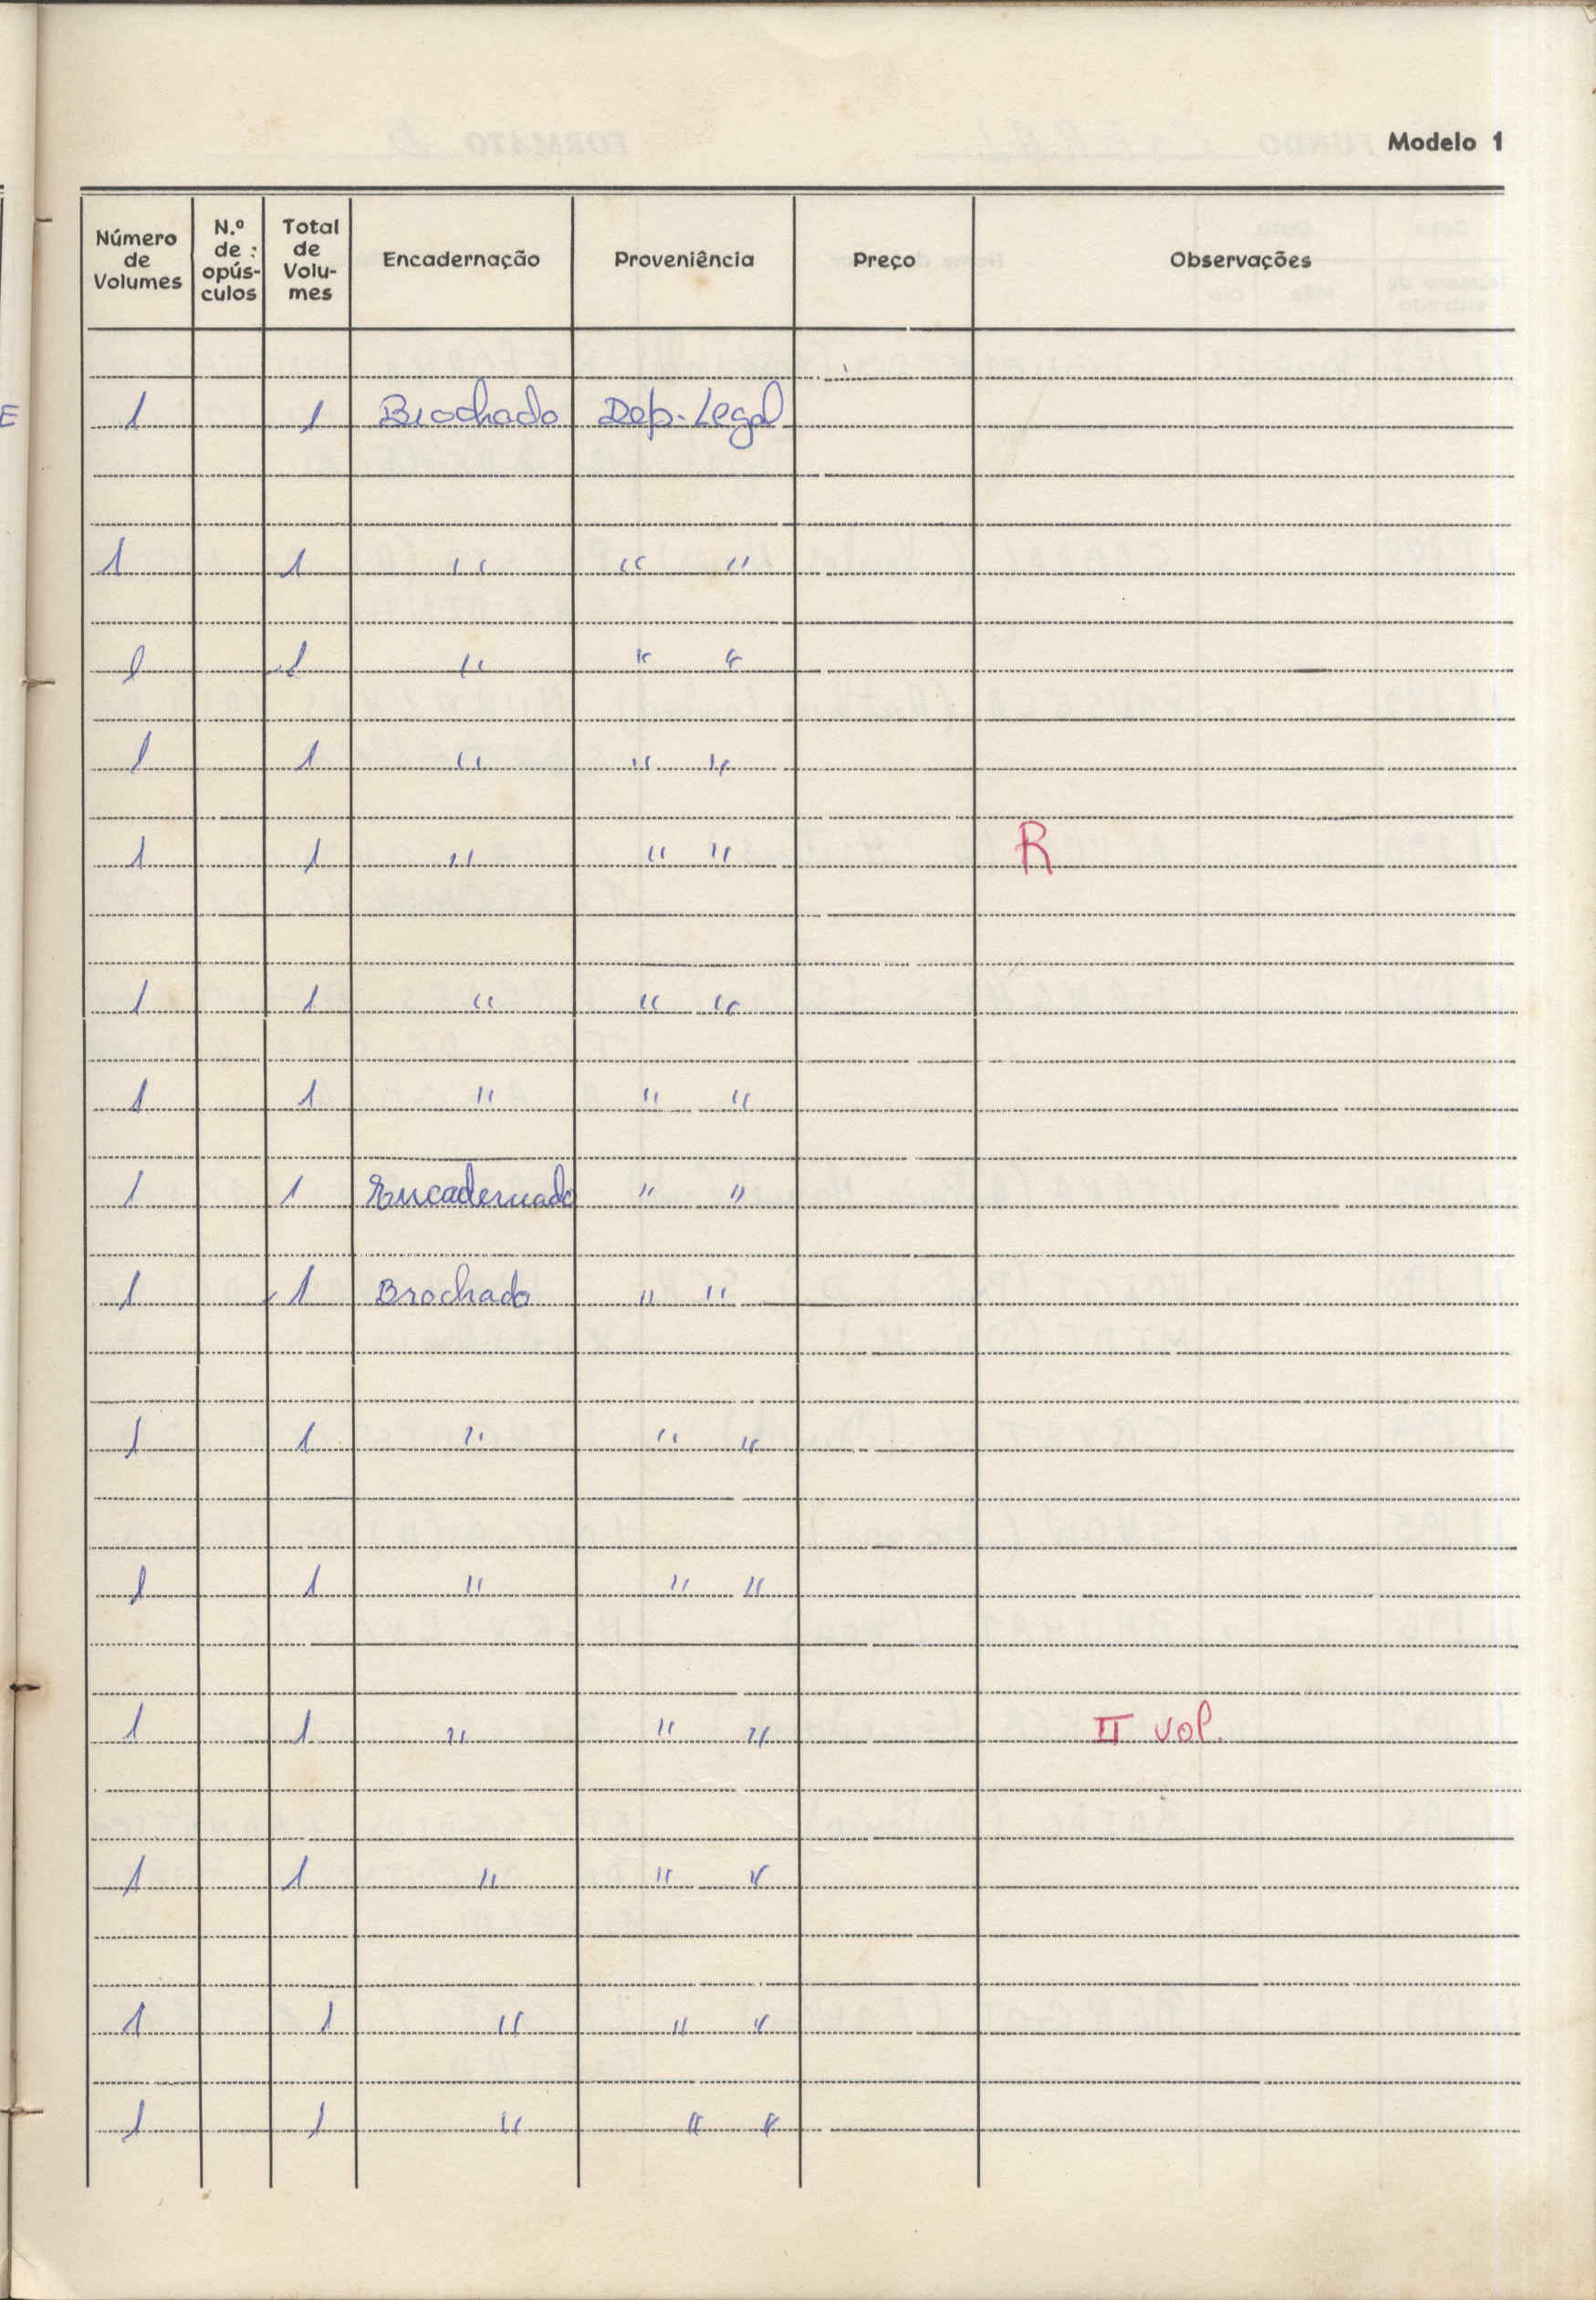 Modelo 1
Número de Volumes N.º de opús-culos Total de Volu-mes Encadernação Proveniência Preço Observações
E 1 1 Brochado Dep. Legal
1 1 " " "
1 1 " " "
1 1 " " "
1 1 " " " R
1 1 " " "
1 1 " " "
1 1 Encadernado " "
1 1 Brochado " "
1 1 " " "
1 1 " " "
1 1 " " " II vol.
1 1 " " "
1 1 " " "
1 1 " " "